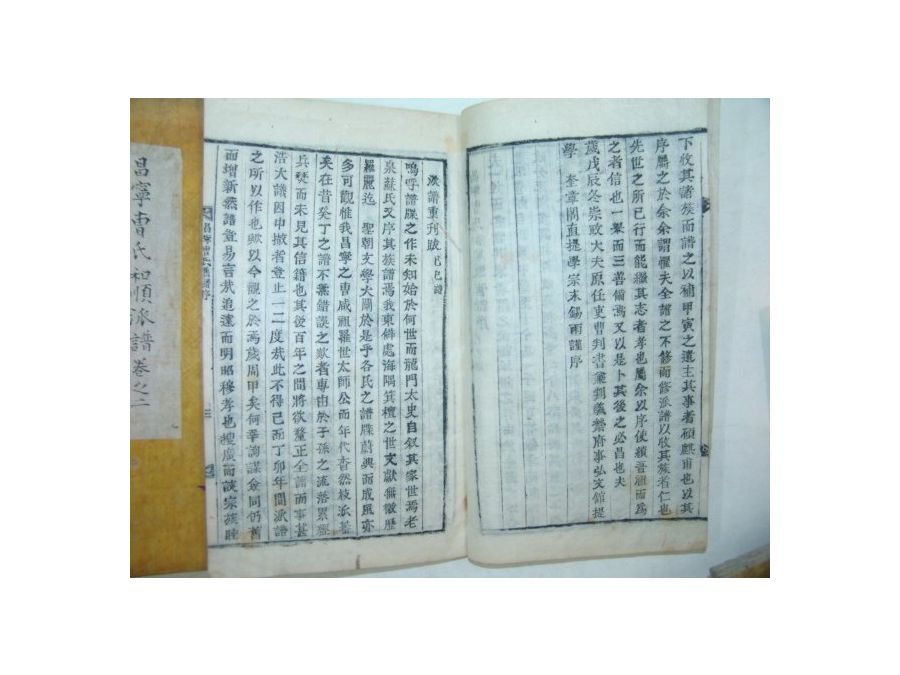 下收其諸族而譜之以補甲寅之遺主其事者碩麒甫也以其
序屬之於余余謂懼夫全譜之不修而修派譜以收其族者仁也
先世之所已行而能繼其志者孝也屬余以序使續吾祖而爲
之者信也一擧而三善備焉又以是卜其後之必昌也夫
歲戊辰冬崇政大夫原任吏曹判書兼判義禁府事弘文館提
學 奎章閣直提學宗末錫雨謹序
派譜重刊跋 己巳譜
嗚呼譜牒之作未知始於何世而龍門太史自叙其家世焉老
泉蘇氏又序其族譜焉我東僻處海隅箕檀之世文獻無徵歷
羅麗迄 聖朝文學大闡於是乎各氏之譜牒蔚興而成風亦
多可觀惟我昌寧之曺咸祖羅世太師公而年代杳然枝派甚
矣在昔癸丁之譜不無錯誤之歎者專由於子孫之流落累經
兵燹而未見其信籍也其後百年之間將欲釐正全譜而事甚
浩大議因中撤者豈止一二度哉此不得已而丁卯年間派譜
之所以作也歟以今觀之於焉歲周甲矣何幸詢謀僉同仍舊
而增新然譜豈易言哉追遠而明昭穆孝也複廣而談宗族睦
昌寧曺氏派譜序
三
昌寧曺氏和順派譜 卷之二